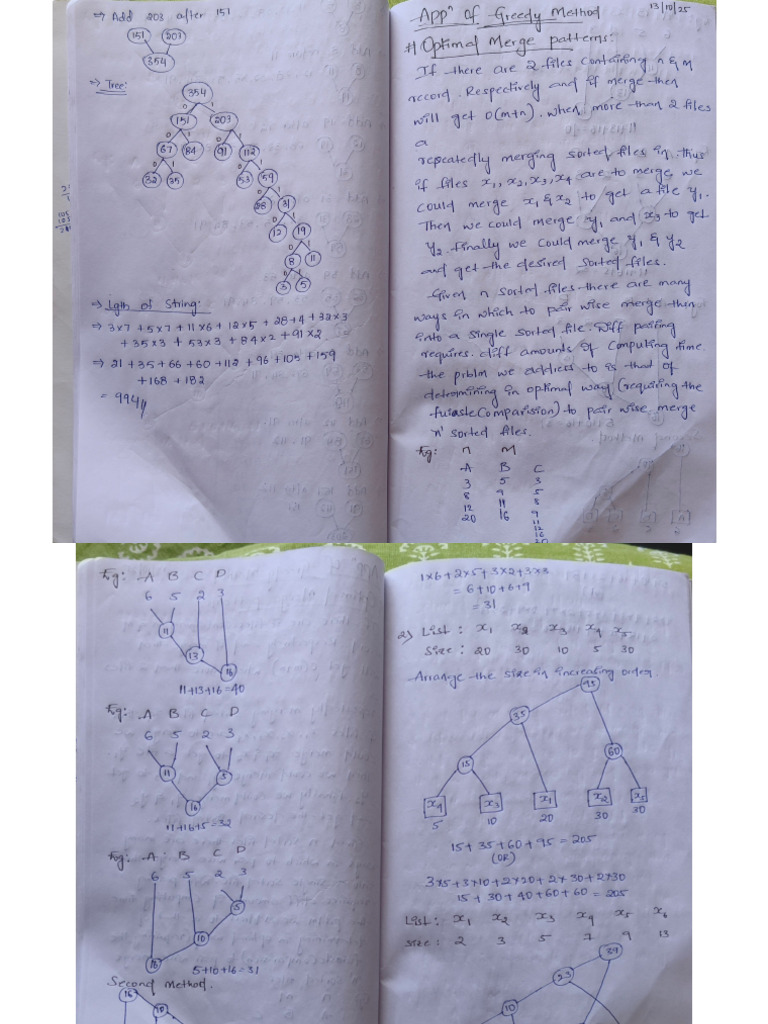 => Add 203 after 151
151 203
354
=> Tree:
354
0 1
151 203
0 1 0 1
67 84 91 112
0 1 0 1
32 35 53 59
0 1
28 31
0 1
12 19
0 1
8 11
0 1
3 5
=> Lgth of String:
=> 3×7 + 5×7 + 11×6 + 12×5 + 28+4 + 32×3
+ 35×3 + 53×3 + 84×2 + 91×2
=> 21 + 35 + 66 + 60 + 112 + 96 + 105 + 159
+ 168 + 182
= 994
13/10/25
Appn of Greedy Method
#) Optimal Merge patterns:
If there are 2 files containing n & m
record. Respectively and if merge then
will get O(m+n). when more than 2 files
a
repeatedly merging sorted files in. thus
if files x1, x2, x3, x4 are to merge, we
could merge x1 & x2 to get a file y1.
Then we could merge y1 and x3 to get
y2. finally we could merge y1 & y2
and get the desired sorted files.
Given n sorted files there are many
ways in which to pair wise merge then
into a single sorted file. Diff pairing
requires. diff amounts of computing time.
the prblm we address to is that of
detromining in optimal way (requiring the
(comparission) to pair wise merge
'n' sorted files.
Eg: n M
A B C
3 5 3
8 9 5
12 11 8
20 16 9
11
12
16
20
Eg: A B C D
6 5 2 3
11
13
16
11+13+16=40
Eg: A B C D
6 5 2 3
11 5
16
11+16+5=32
Eg: A B C D
6 5 2 3
5
10
16
5+10+16=31
Second Method.
16
10
1×6+2×5+3×2+3×3
= 6+10+6+9
= 31
2) List : x1 x2 x3 x4 x5
Size : 20 30 10 5 30
Arrange the size in increasing order.
95
35
60
15
x4 x3 x1 x2 x5
5 10 20 30 30
15 + 35 + 60 + 95 = 205
(OR)
3×5+3×10+2×20+2×30+2×30
15 + 30 + 40 + 60 + 60 = 205
List : x1 x2 x3 x4 x5 x6
Size : 2 3 5 7 9 13
39
23
10